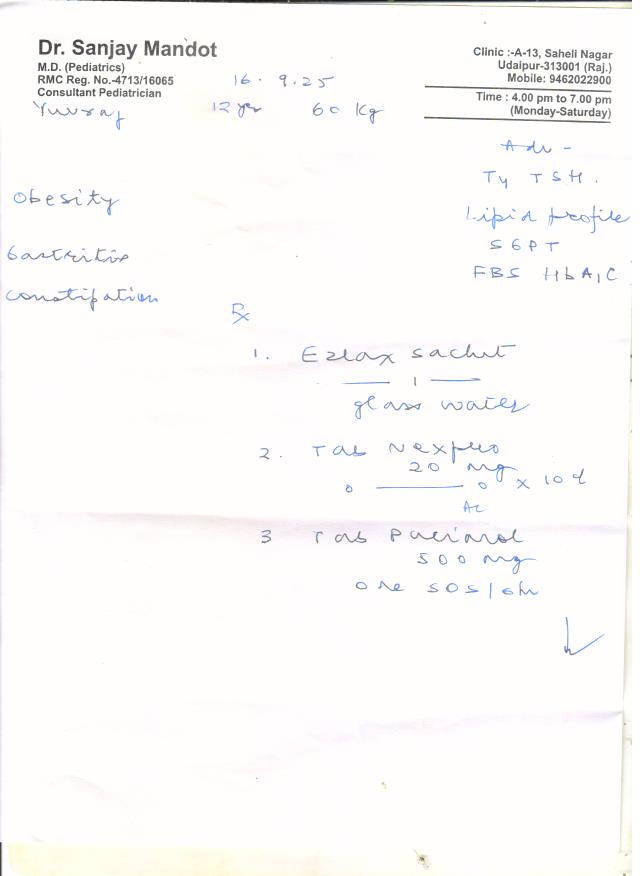 Dr. Sanjay Mandot
M.D. (Pediatrics)
RMC Reg. No.-4713/16065
Consultant Pediatrician
Clinic :-A-13, Saheli Nagar
Udaipur-313001 (Raj.)
Mobile: 9462022900
Time : 4.00 pm to 7.00 pm
(Monday-Saturday)
16.9.25
Yuvraj 12 yr 60 Kg
Adv -
T4 TSH.
Lipid profile
SGPT
FBS HbA1C
Obesity
Gastritis
Constipation
Rx
1. Ezlax sachet
— 1 —
glass water
2. Tab Nexpro
20 mg
0 — 0 x 10d
AC
3 Tab Pacimol
500 mg
one SOS/6h